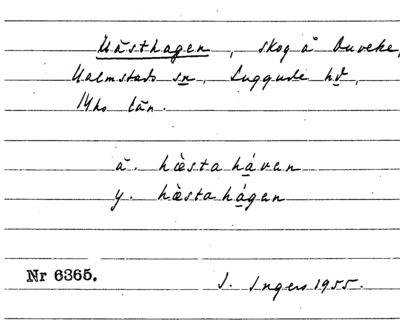 Hästhagen, skog å Duveke,
Halmstads sn, Luggude hd,
Mhs län.
ä. hæ̀sta hávan
y. hæ̀sta hágen
Nr 6365.
I. Ingers 1955.